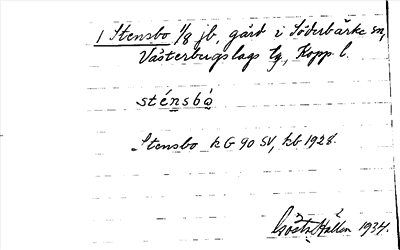 1 Stensbo 1/8 jb, gård i Söderbärke sn,
Västerbergslags tg., Kopp l.
sténsbò
Stensbo kG 90 SV, kb 1928.
Gösta Hallen 1934.